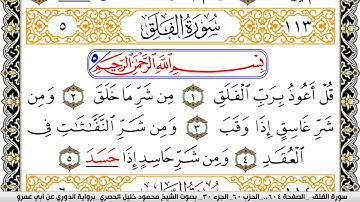 ١١٣ سُورَةُ الفَلَقِ ٥
بِسْمِ اللَّهِ الرَّحْمَٰنِ الرَّحِيمِ
قُلْ أَعُوذُ بِرَبِّ الْفَلَقِ ١ مِن شَرِّ مَا خَلَقَ ٢ وَمِن
شَرِّ غَاسِقٍ إِذَا وَقَبَ ٣ وَمِن شَرِّ النَّفَّٰثَٰتِ فِي
الْعُقَدِ ٤ وَمِن شَرِّ حَاسِدٍ إِذَا حَسَدَ ٥
سورة الفلق _ الصفحة ٦٠٤ .. الحزب ٦٠_ الجزء ٣٠_ بصوت الشيخ محمود خليل الحصري_ برواية الدوري عن أبي عمرو